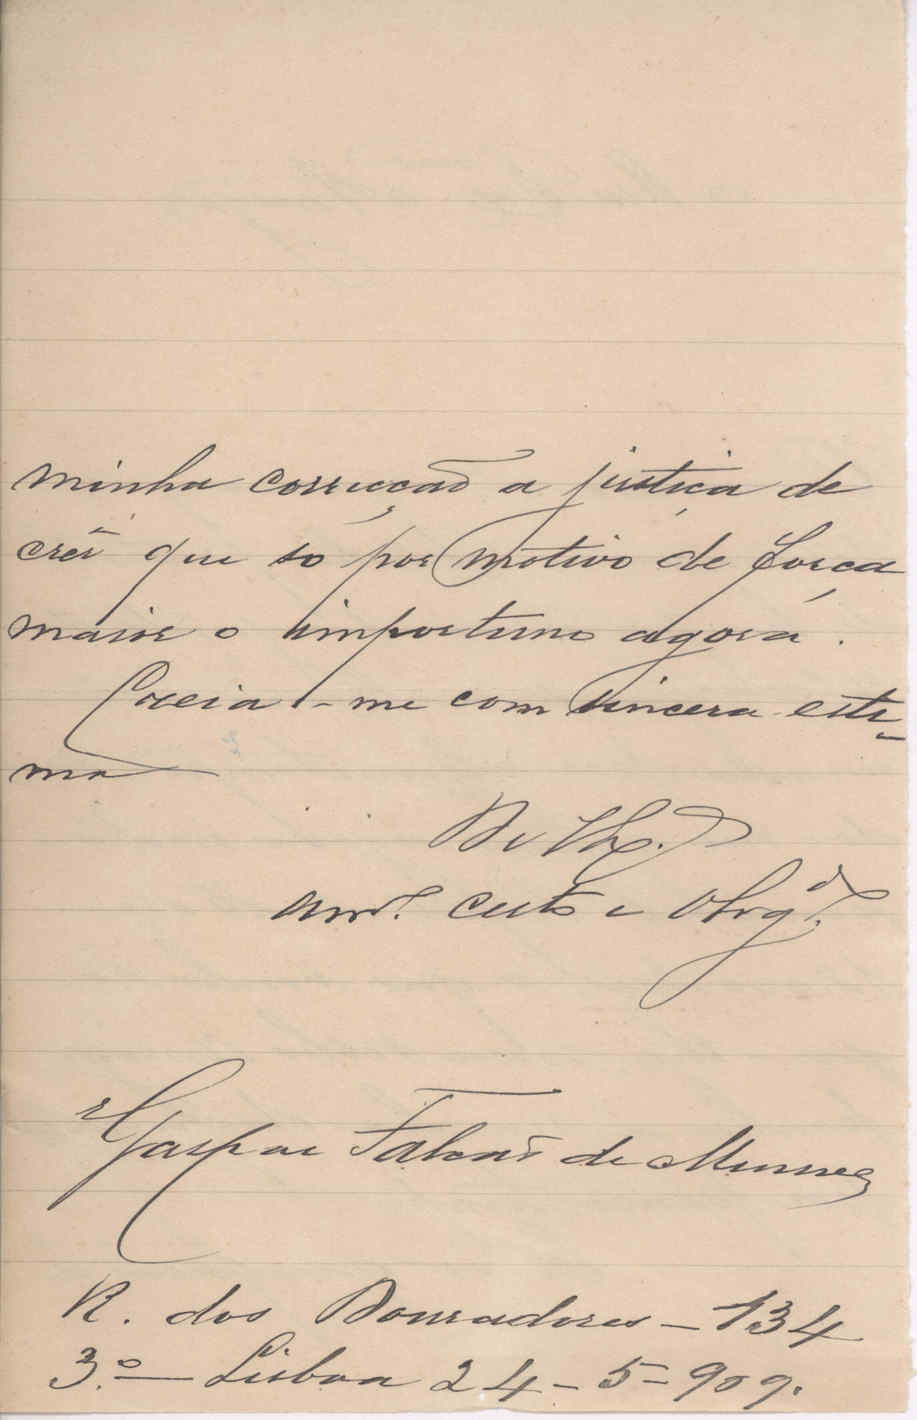 minha correcção a justiça de
crêr que só por motivo de força
maior o importuno agora.
Creia-me com sincera esti-
ma
De V. Ex.ª
Am.º Certo e Obrg.do
Gaspar Falcão de Menezes
R. dos Douradores - 134
3.º - Lisboa 24 - 5 - 909.